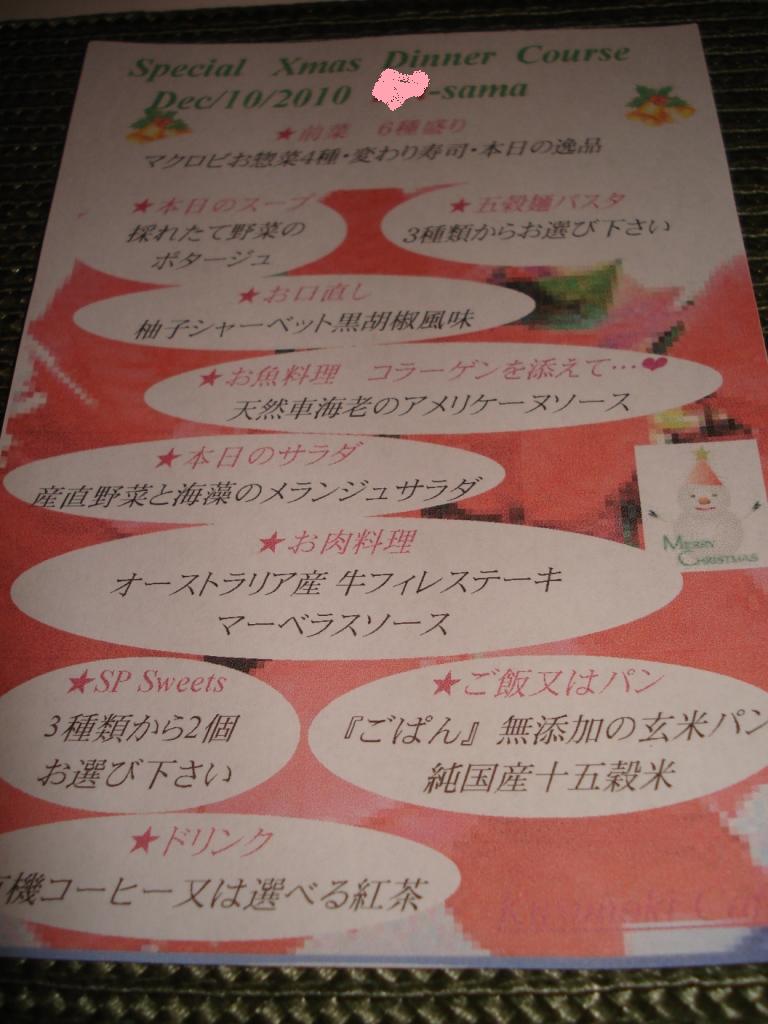 Special Xmas Dinner Course
Dec/10/2010 -sama
★前菜 6種盛り
マクロビお惣菜4種・変わり寿司・本日の逸品
★本日のスープ
採れたて野菜の
ポタージュ
★五穀麺パスタ
3種類からお選び下さい
★お口直し
柚子シャーベット黒胡椒風味
★お魚料理 コラーゲンを添えて…❤
天然車海老のアメリケーヌソース
★本日のサラダ
産直野菜と海藻のメランジュサラダ
MERRY
CHRISTMAS
★お肉料理
オーストラリア産 牛フィレステーキ
マーベラスソース
★SP Sweets
3種類から2個
お選び下さい
★ご飯又はパン
『ごぱん』無添加の玄米パン
純国産十五穀米
★ドリンク
機コーヒー又は選べる紅茶